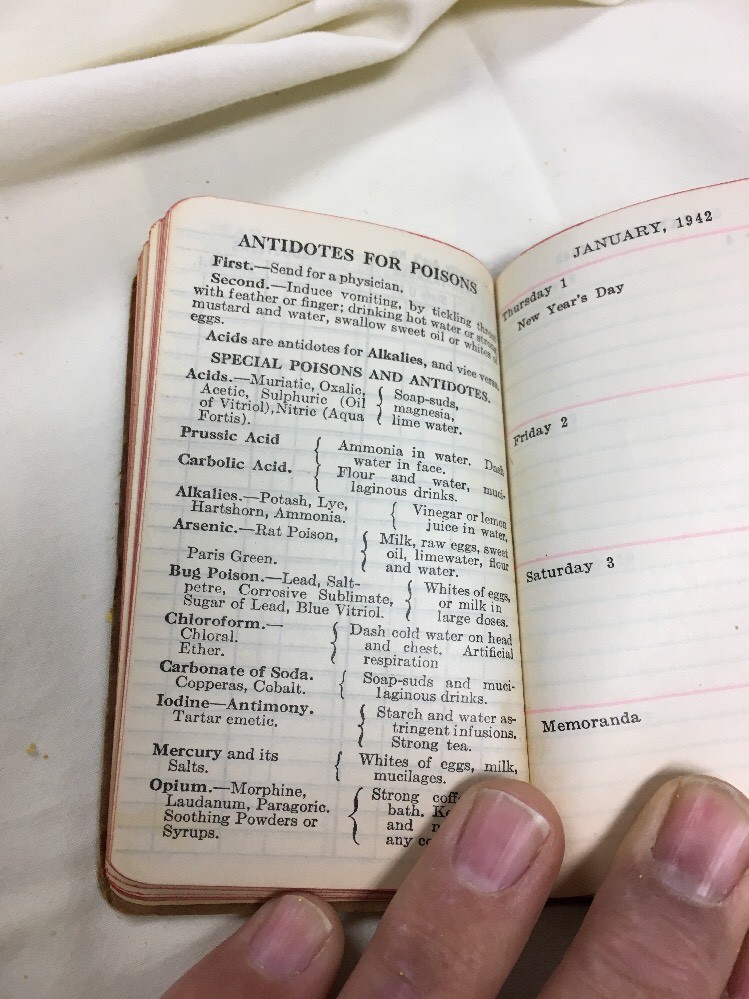 ANTIDOTES FOR POISONS
First.—Send for a physician.
Second.—Induce vomiting, by tickling
with feather or finger; drinking hot water or
mustard and water, swallow sweet oil or whites
eggs.
Acids are antidotes for Alkalies, and vice versa.
SPECIAL POISONS AND ANTIDOTES.
Acids.—Muriatic, Oxalic,
Acetic, Sulphuric (Oil
of Vitriol), Nitric (Aqua
Fortis).
Soap-suds,
magnesia,
lime water.
Prussic Acid
Ammonia in water. Dash
water in face.
Carbolic Acid.
Flour and water, muci-
laginous drinks.
Alkalies.—Potash, Lye,
Hartshorn, Ammonia.
Vinegar or lemon
juice in water,
Arsenic.—Rat Poison,
Paris Green.
Milk, raw eggs, sweet
oil, limewater, flour
and water.
Bug Poison.—Lead, Salt-
petre, Corrosive Sublimate,
Sugar of Lead, Blue Vitriol.
Whites of eggs,
or milk in
large doses.
Chloroform.—
Chloral.
Ether.
Dash cold water on head
and chest. Artificial
respiration
Carbonate of Soda.
Copperas, Cobalt.
Soap-suds and muci-
laginous drinks.
Iodine—Antimony.
Tartar emetic.
Starch and water as-
tringent infusions.
Strong tea.
Mercury and its
Salts.
Whites of eggs, milk,
mucilages.
Opium.—Morphine,
Laudanum, Paragoric.
Soothing Powders or
Syrups.
Strong
bath.
and
any
JANUARY, 1942
Thursday 1
New Year's Day
Friday 2
Saturday 3
Memoranda